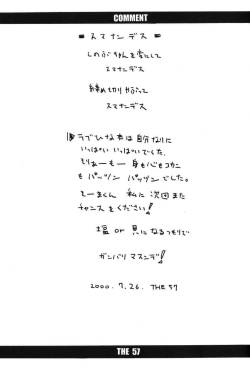 COMMENT
= スマナンデス =
しのぶちゃんを客にして
スマナンデス
締め切りやぶって
スマナンデス
ラブひな本は自分なりに
いっぱい いっぱいでした。
もりぁーもー 身も心もコカン
も パッツン パッツンでした。
私に 次回また
チャンスをください!
塩 or 貝になるつもりで
ガンバリマスンデ!
2000. 7. 26. THE 57
THE 57